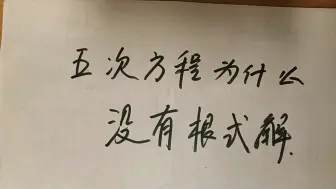 五次方程为什么
没有根式解